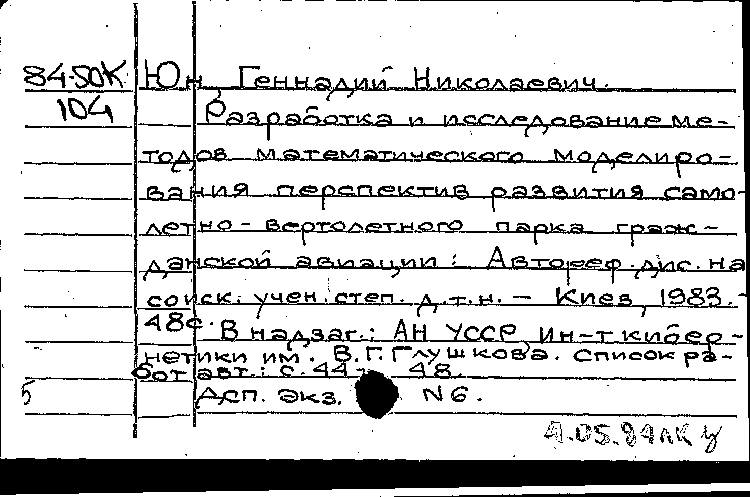 84-50К Юн, Геннадий Николаевич.
104 Разработка и исследование ме-
тодов математического моделиро-
вания перспектив развития само-
летно-вертолетного парка граж-
данской авиации: Автореф. дис. на
соиск. учен. степ. д.т.н. - Киев, 1983.-
48с. В надзаг.: АН УССР, ин-т кибер-
нетики им. В.Г. Глушкова. Список ра-
бот авт.: с. 44-48.
Б Дсп. экз. N 6.
4.05.84